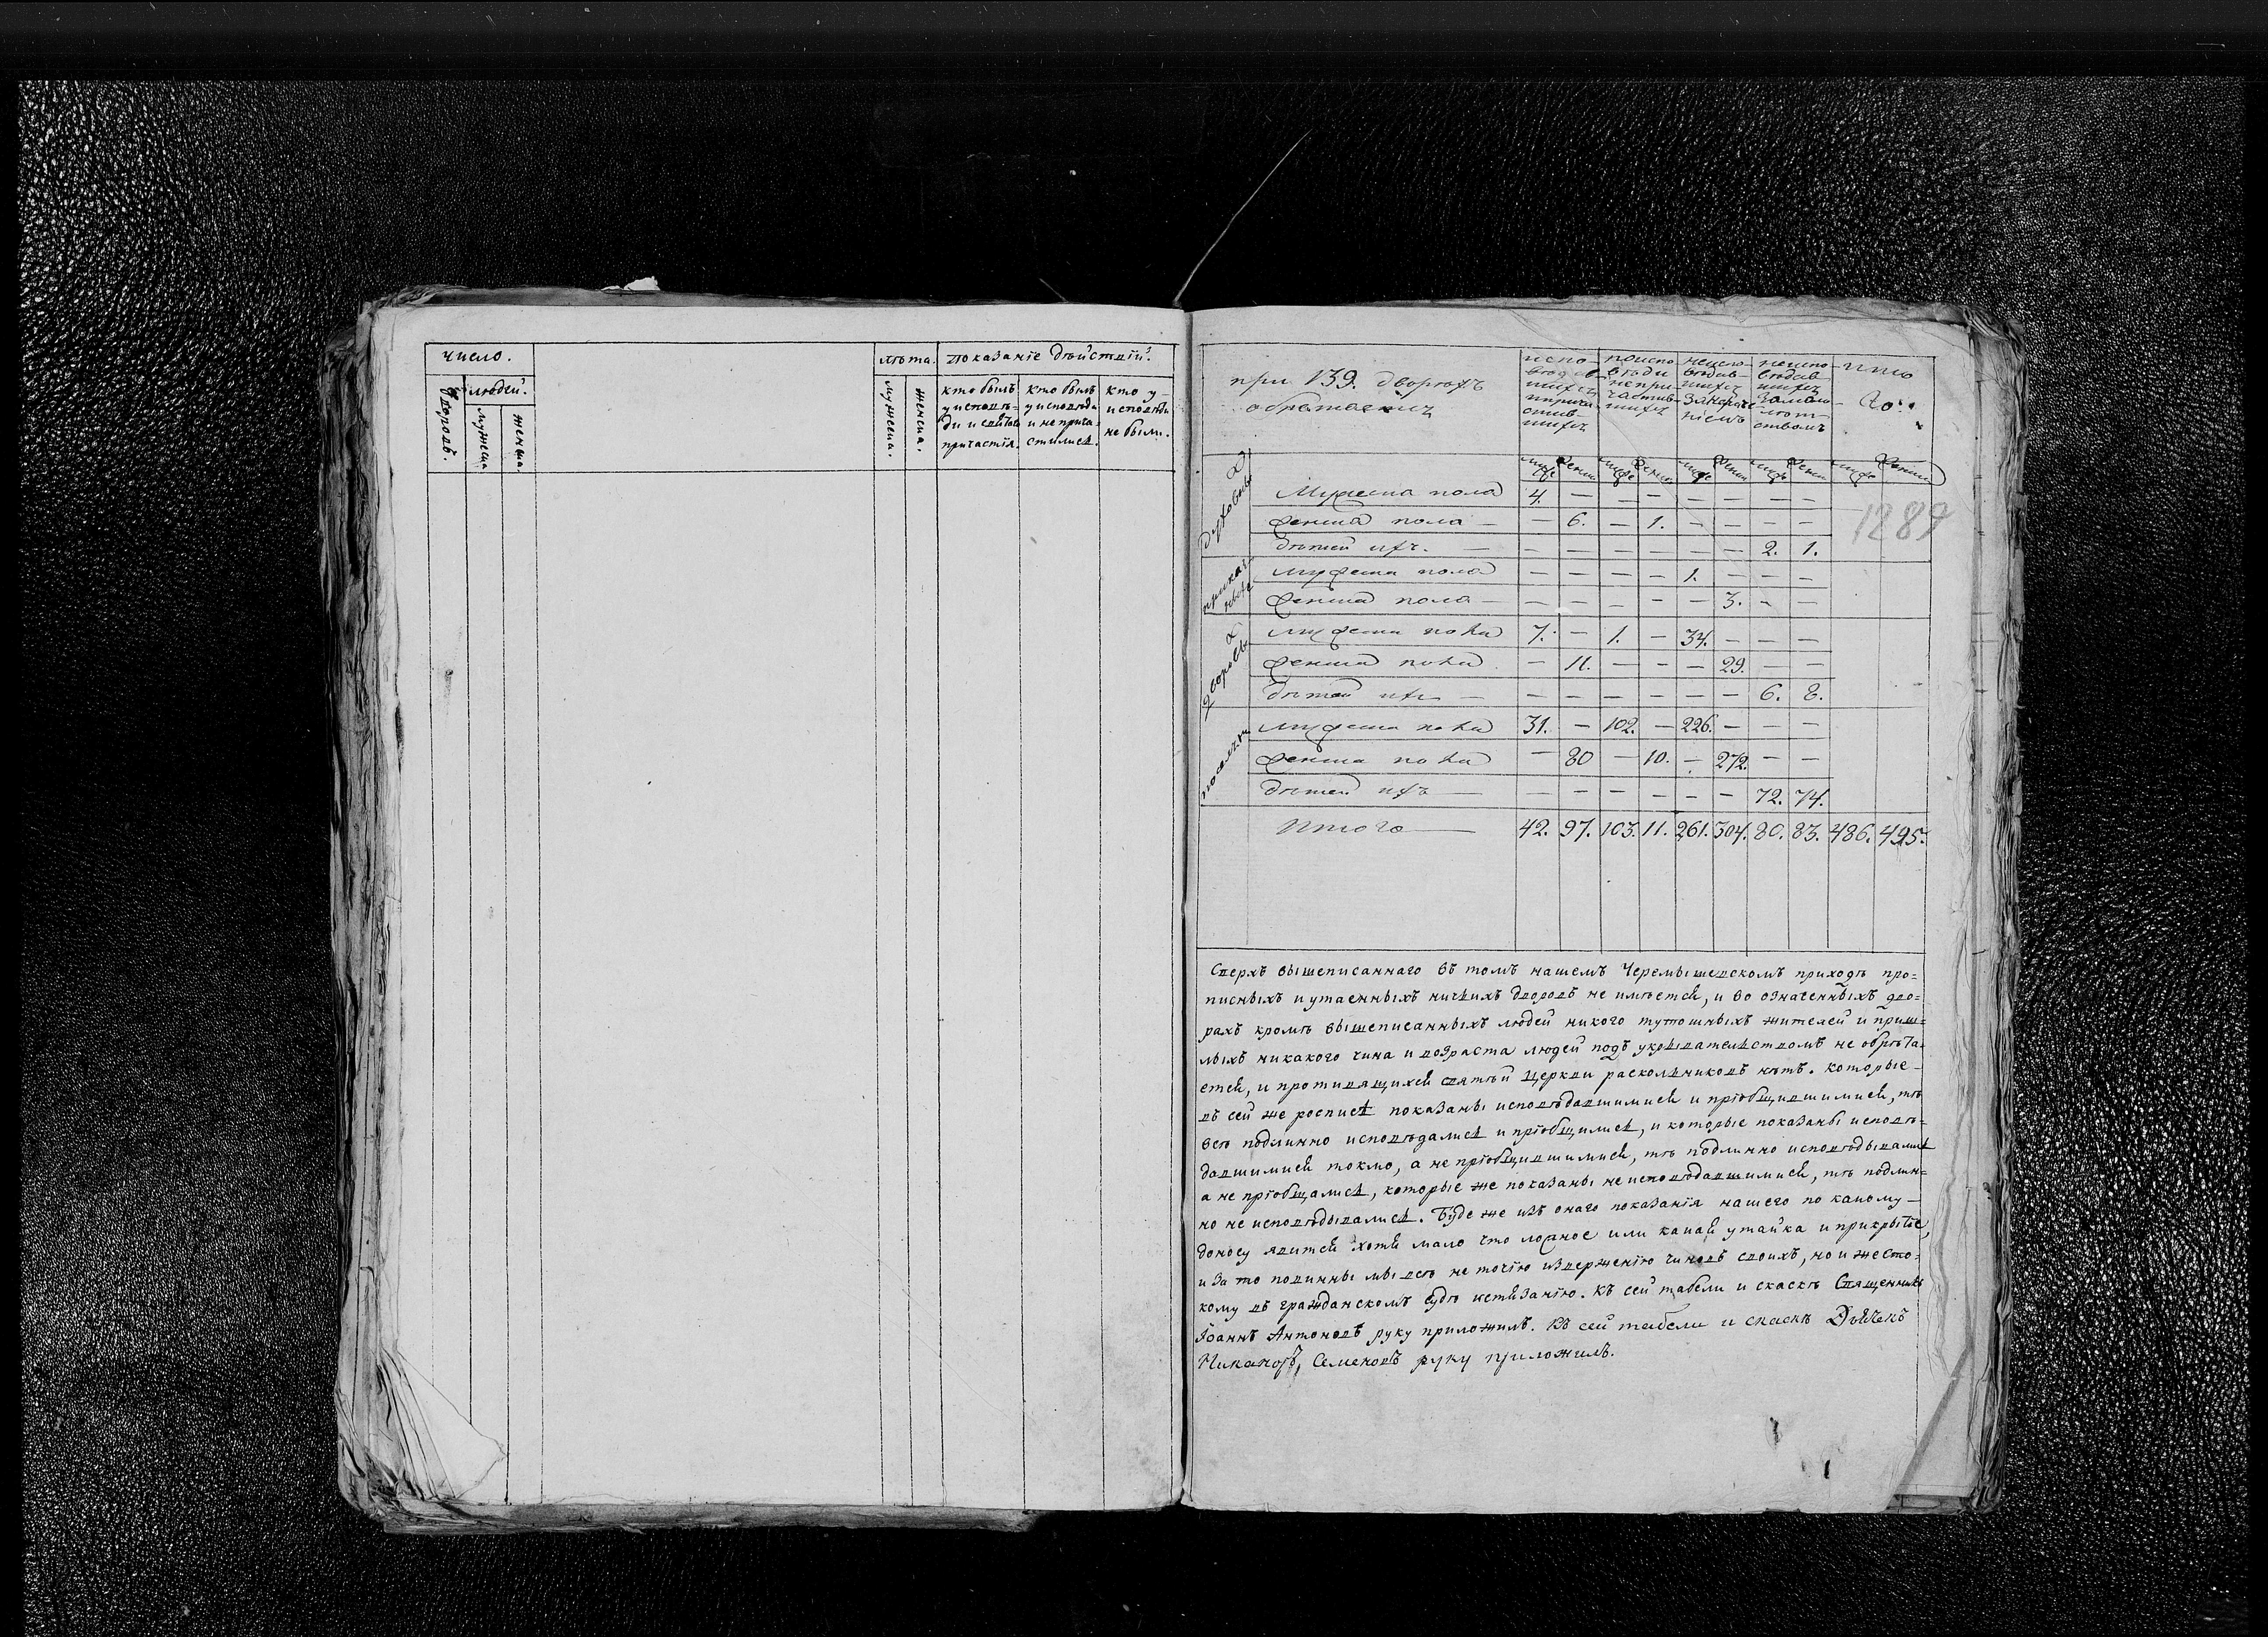 число.
лѣта. показанїе дѣйствїй.
дворовъ.
людей.
мужеска
женска.
мужеска.
женска.
кто былъ
у исповѣ-
ди и свѧтаго
причастїѧ.
кто былъ
у исповѣди
и не прича-
стилсѧ.
кто у
исповѣди
не были.
при 139. дворахъ
обрѣтается
испо-
вѣдав-
шихся
и прича
стив-
шихся
поиспо
вѣди
непри-
частив-
шихся
неиспо-
вѣдав-
шихся
за нераче-
нїемъ
неиспо
вѣдав
шихся
за мало-
лѣт-
ствомъ
ито
го:
муже женска муже женска муже женска муже женска муже женска
духовныхъ
Мужеска пола 4. — — — — — — —
женска пола — — 6. — 1. — — — —
дѣтей ихъ. — — — — — — — 2. 1.
1289
приказныхъ
мужеска пола — — — — 1. — — —
женска пола — — — — — — 3. — —
дворовыхъ
мужеска пола 7. — 1. — 34. — — —
женска пола — 11. — — — 29. — —
дѣтей ихъ — — — — — — — 6. 8.
поселянъ
мужеска пола 31. — 102. — 226. — — —
женска пола — 80 — 10. — 272. — —
дѣтей ихъ — — — — — — — 72. 74.
Итого — 42. 97. 103. 11. 261. 304. 80. 83. 486. 495.
Сверхъ вышеписаннаго въ томъ нашемъ Черемышевскомъ приходѣ про-
писныхъ и утаенныхъ ничьихъ дворовъ не имѣетсѧ, и во означенныхъ дво-
рахъ кромѣ вышеписанныхъ людей никого тутошныхъ жителей и приш-
лыхъ никакого чина и возраста людей подъ укрывательствомъ не обрѣта-
етсѧ, и противящихсѧ свѧтѣй церкви раскольниковъ нѣтъ. которые-
въ сей же росписѣ показаны исповѣдавшимисѧ и прїобщившимисѧ, тѣ
всѣ подлинно исповѣдались и прїобщились, и которые показаны исповѣ-
давшимисѧ токмо, а не прїобщившимисѧ, тѣ подлинно исповѣдывались
а не прїобщались, которые же показаны неисповѣдавшимисѧ, тѣ подлин-
но не исповѣдывались. Буде же изъ онаго показанїя нашего по какому-
доносу явитсѧ хотѧ мало что ложное или какаѧ утайка и прикрытїе,
и за то повинны мы всѣ не точїю изверженїю чиновъ своихъ, но и жесто-
кому въ гражданскомъ судѣ истѧзанїю. Къ сей табели и сказкѣ Священникъ
Іоаннъ Антоновъ руку приложилъ. Къ сей табели и сказкѣ Дьячекъ
Никаноръ Семеновъ руку приложилъ.